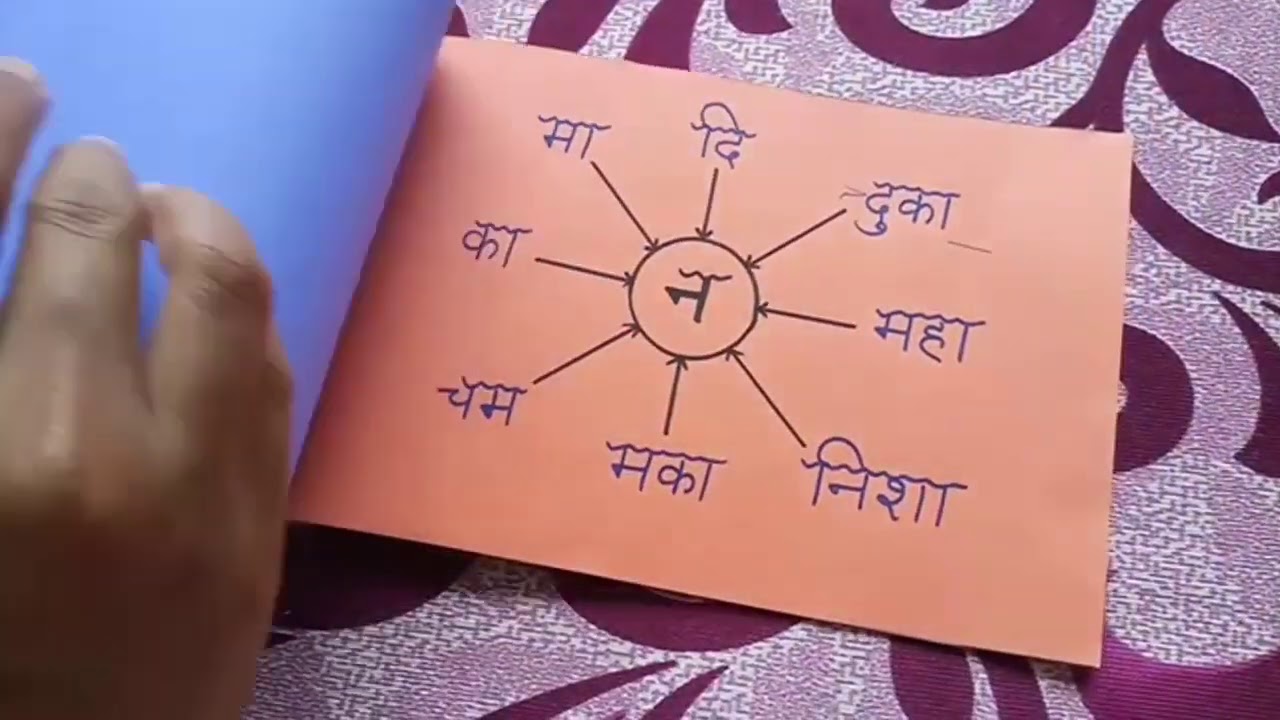 मा
दि
दुका
का
न
महा
चम
मका
निशा